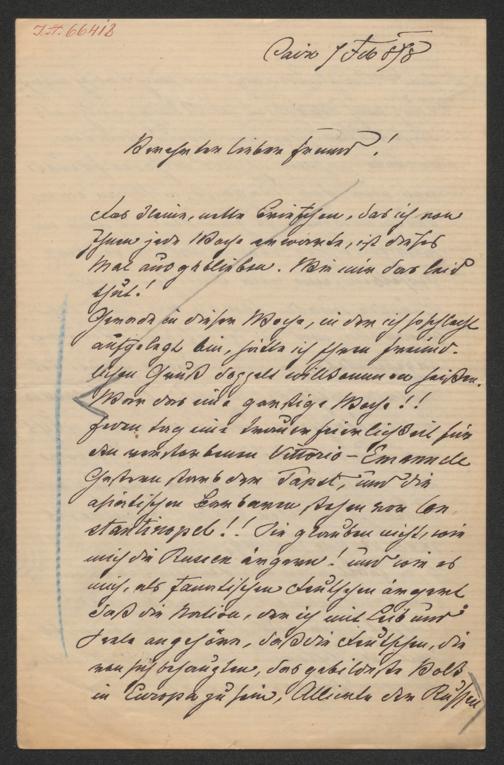 I.N. 66418
Paris 7 Feb 878
Verehrter lieber Freund!
das kleine, nette Briefchen, das ich von
Ihnen jede Woche erwarte, ist dieses
Mal ausgeblieben. Wie mir das leid
thut!
Gerade in dieser Woche, in der ich so schlecht
aufgelegt bin, hätte ich Ihren freund-
lichen Gruß doppelt willkommen heißen.
War das eine garstige Woche!!
Jeden Tag eine Trauerfeierlichkeit für
den verstorbenen Vittorio-Emanuele
Gestern starb der Papst, und die
asiatischen Barbaren stehen vor Con-
stantinopel!! Sie glauben nicht, wie
mich die Russen ärgern! und wie es
mich, als fanatischen Deutschen ärgert
daß die Nation, der ich mit Leib und
Seele angehöre, daß die Deutschen, die
von sich behaupten, das gebildetste Volk
in Europa zu sein, Alliirte der Russen